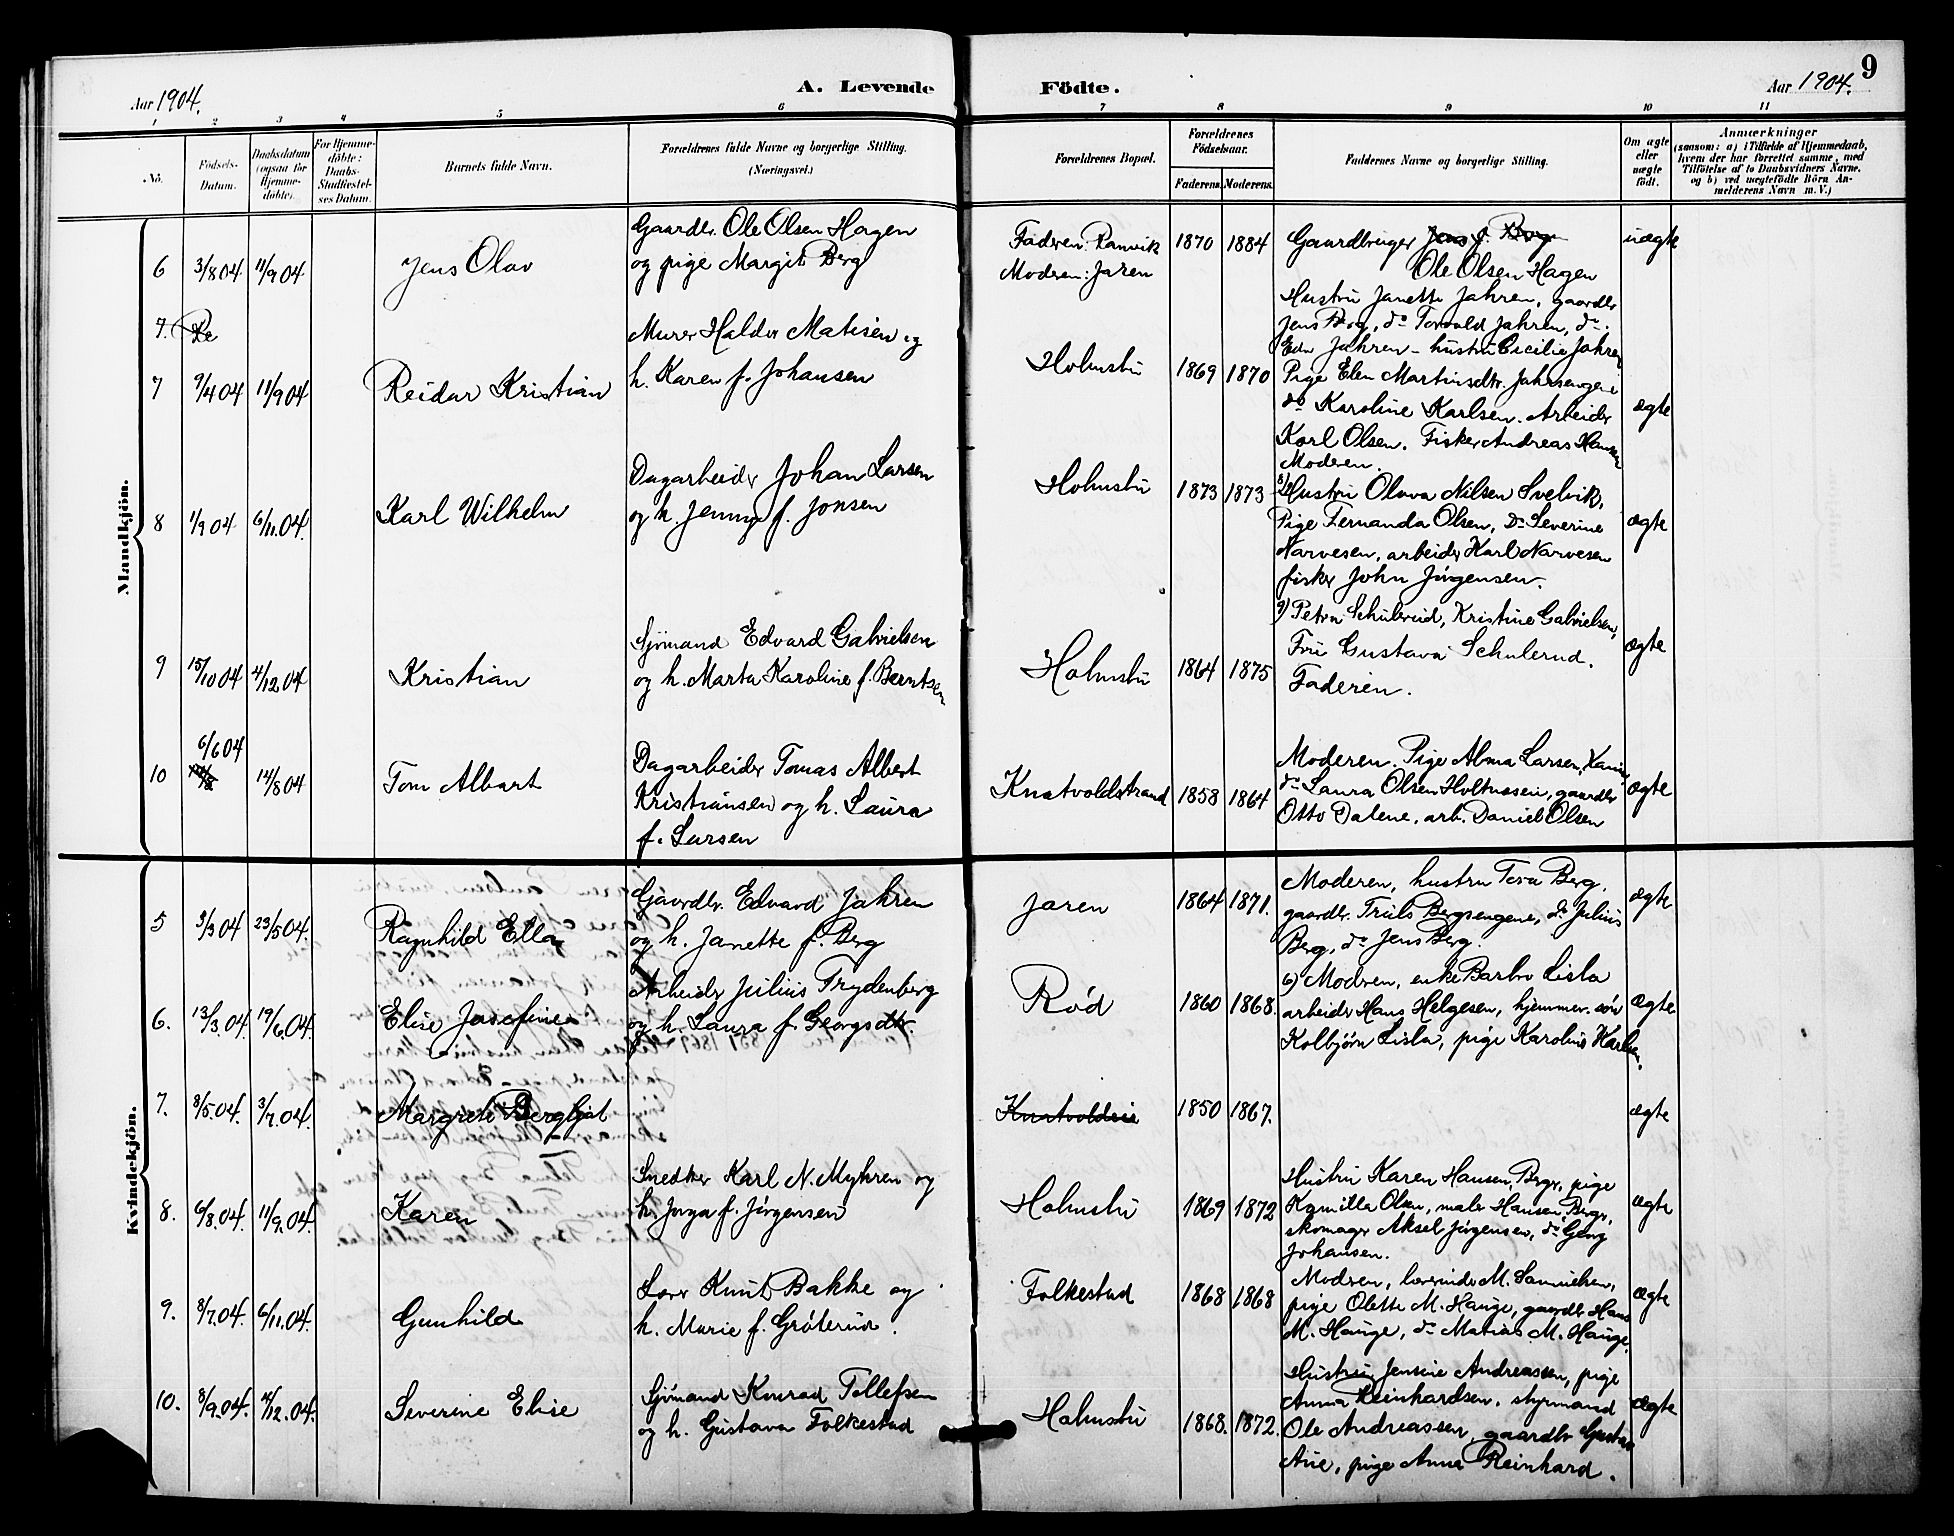 Aar 1904.
A. Levende Födte.
Aar 1904.
9
1 2 3 4 5 6 7 8 9 10 11
No.
Födsels-Datum.
Daabsdatum (ogsaa for Hjemmedöbte).
For Hjemmedöbte: Daabs-Stadfæstelses Datum.
Barnets fulde Navn.
Forældrenes fulde Navne og borgerlige Stilling.
(Næringsvei.)
Forældrenes Bopæl.
Forældrenes Födselsaar.
Faderens. Moderens.
Faddernes Navne og borgerlige Stilling.
Om ægte eller uægte födt.
Anmærkninger
(saasom: a) i Tilfælde af Hjemmedaab,
hvem der har forrettet samme, med
Tilföielse af to Daabsvidners Navne,
og b) ved uægtefödte Börn An-
melderens Navn m. V.)
Mandkjön.
6 3/8 04 11/9 04 Jens Olav
Gaardbr. Ole Olsen Hagen
og pige Margit Berg
Faderen: Ranvik
Modren: Jaren
1870 1884
Gaardbruger Jens J. Berg
Ole Olsen Hagen
Hustru Janette Jahren, gaardbr
Jens Berg, do Torvald Jahren, do.
Edv. Jahren - hustru Cecilie Jahren
uægte
7. Re
7 9/4 04 11/9 04 Reidar Kristian
Murer Haldor Matisen og
h. Karen f. Johansen
Holmsbu
1869 1870
Pige Elen Martinsdtr. Jahrsengene
do Karoline Karlsen. Arbeider
Karl Olsen. Fisker Andreas Hansen
Moderen.
ægte
8 1/9 04 6/11.04. Karl Wilhelm
Dagarbeider Johan Larsen
og h. Jenny f. Jonsen
Holmsbu
1873 1873
8) Hustru Olava Nilsen Svelvik,
Pige Fernanda Olsen, Do Severine
Narvesen, arbeider Karl Narvesen
fisker John Jörgensen.
ægte
9 15/10 04 4/12 04 Kristian
Sjömand Edvard Gabrielsen
og h. Marta Karoline f. Berntsen
Holmsbu
1864 1875
9) Petra Schulerud, Kristine Gabrielsen,
Fru Gustava Schulerud.
Faderen.
ægte
10 6/6 04 14/8 04 Tom Albart
Dagarbeider Tomas Albert
Kristiansen og h. Laura
f. Larsen
Knatvoldstrand
1858 1864
Moderen. Pige Alma Larsen,
do Laura Olsen Holtnesen, gaardbr
Otto Dalene, arb. Daniel Olsen
ægte
Kvindekjön.
5 3/3 04 23/5 04. Ragnhild Ella
Gaardbr. Edvard Jahren
og h. Janette f. Berg
Jaren
1864 1871.
Moderen, hustru Tora Berg,
gaardbr. Truls Bergsengene, do Julius
Berg, do Jens Berg.
ægte
6. 13/3.04 19/6.04. Elise Josefine
Arbeider Julius Trydenborg
og h. Laura f. Georgsdtr.
Röd
1860 1868.
6) Modren, enke Barbro Lisla
arbeider Hans Helgesen, hjemmev. sön
Kolbjörn Lisla, pige Karolius Karlsen.
ægte
7. 8/5.04. 3/7.04. Margrete Bergljot
Knatvoldeie
1850 1867.
ægte
8. 6/8.04. 11/9.04. Karen
Snedker Karl N. Myhren og
h. Inga f. Jörgensen
Holmsbu
1869 1872
Hustru Karen Hansen, Bergr, pige
Kamilla Olsen, maler Hansen, Bergr,
skomager Aksel Jörgensen, do Georg
Johansen.
ægte
9. 8/7.04. 6/11.04. Gunhild
Lærer Knut Bakke og
h. Marie f. Gröterud.
Folkestad
1868 1868
Modren, lærerinde M. Samuelsen,
pige Olette M. Hauge, gaardbr Hans
M. Hauge, do Matias M. Hauge.
ægte
10. 8/9.04. 4/12.04. Severine Elise
Sjömand Konrad Tollefsen
og h. Gustava Folkestad
Holmsbu
1868. 1872.
Hustru Jensine Andreassen, pige
Anna Reinhardsen, styrmand
Ole Andreassen, gaardbr Gustav
Aue, pige Anna Reinhard.
ægte